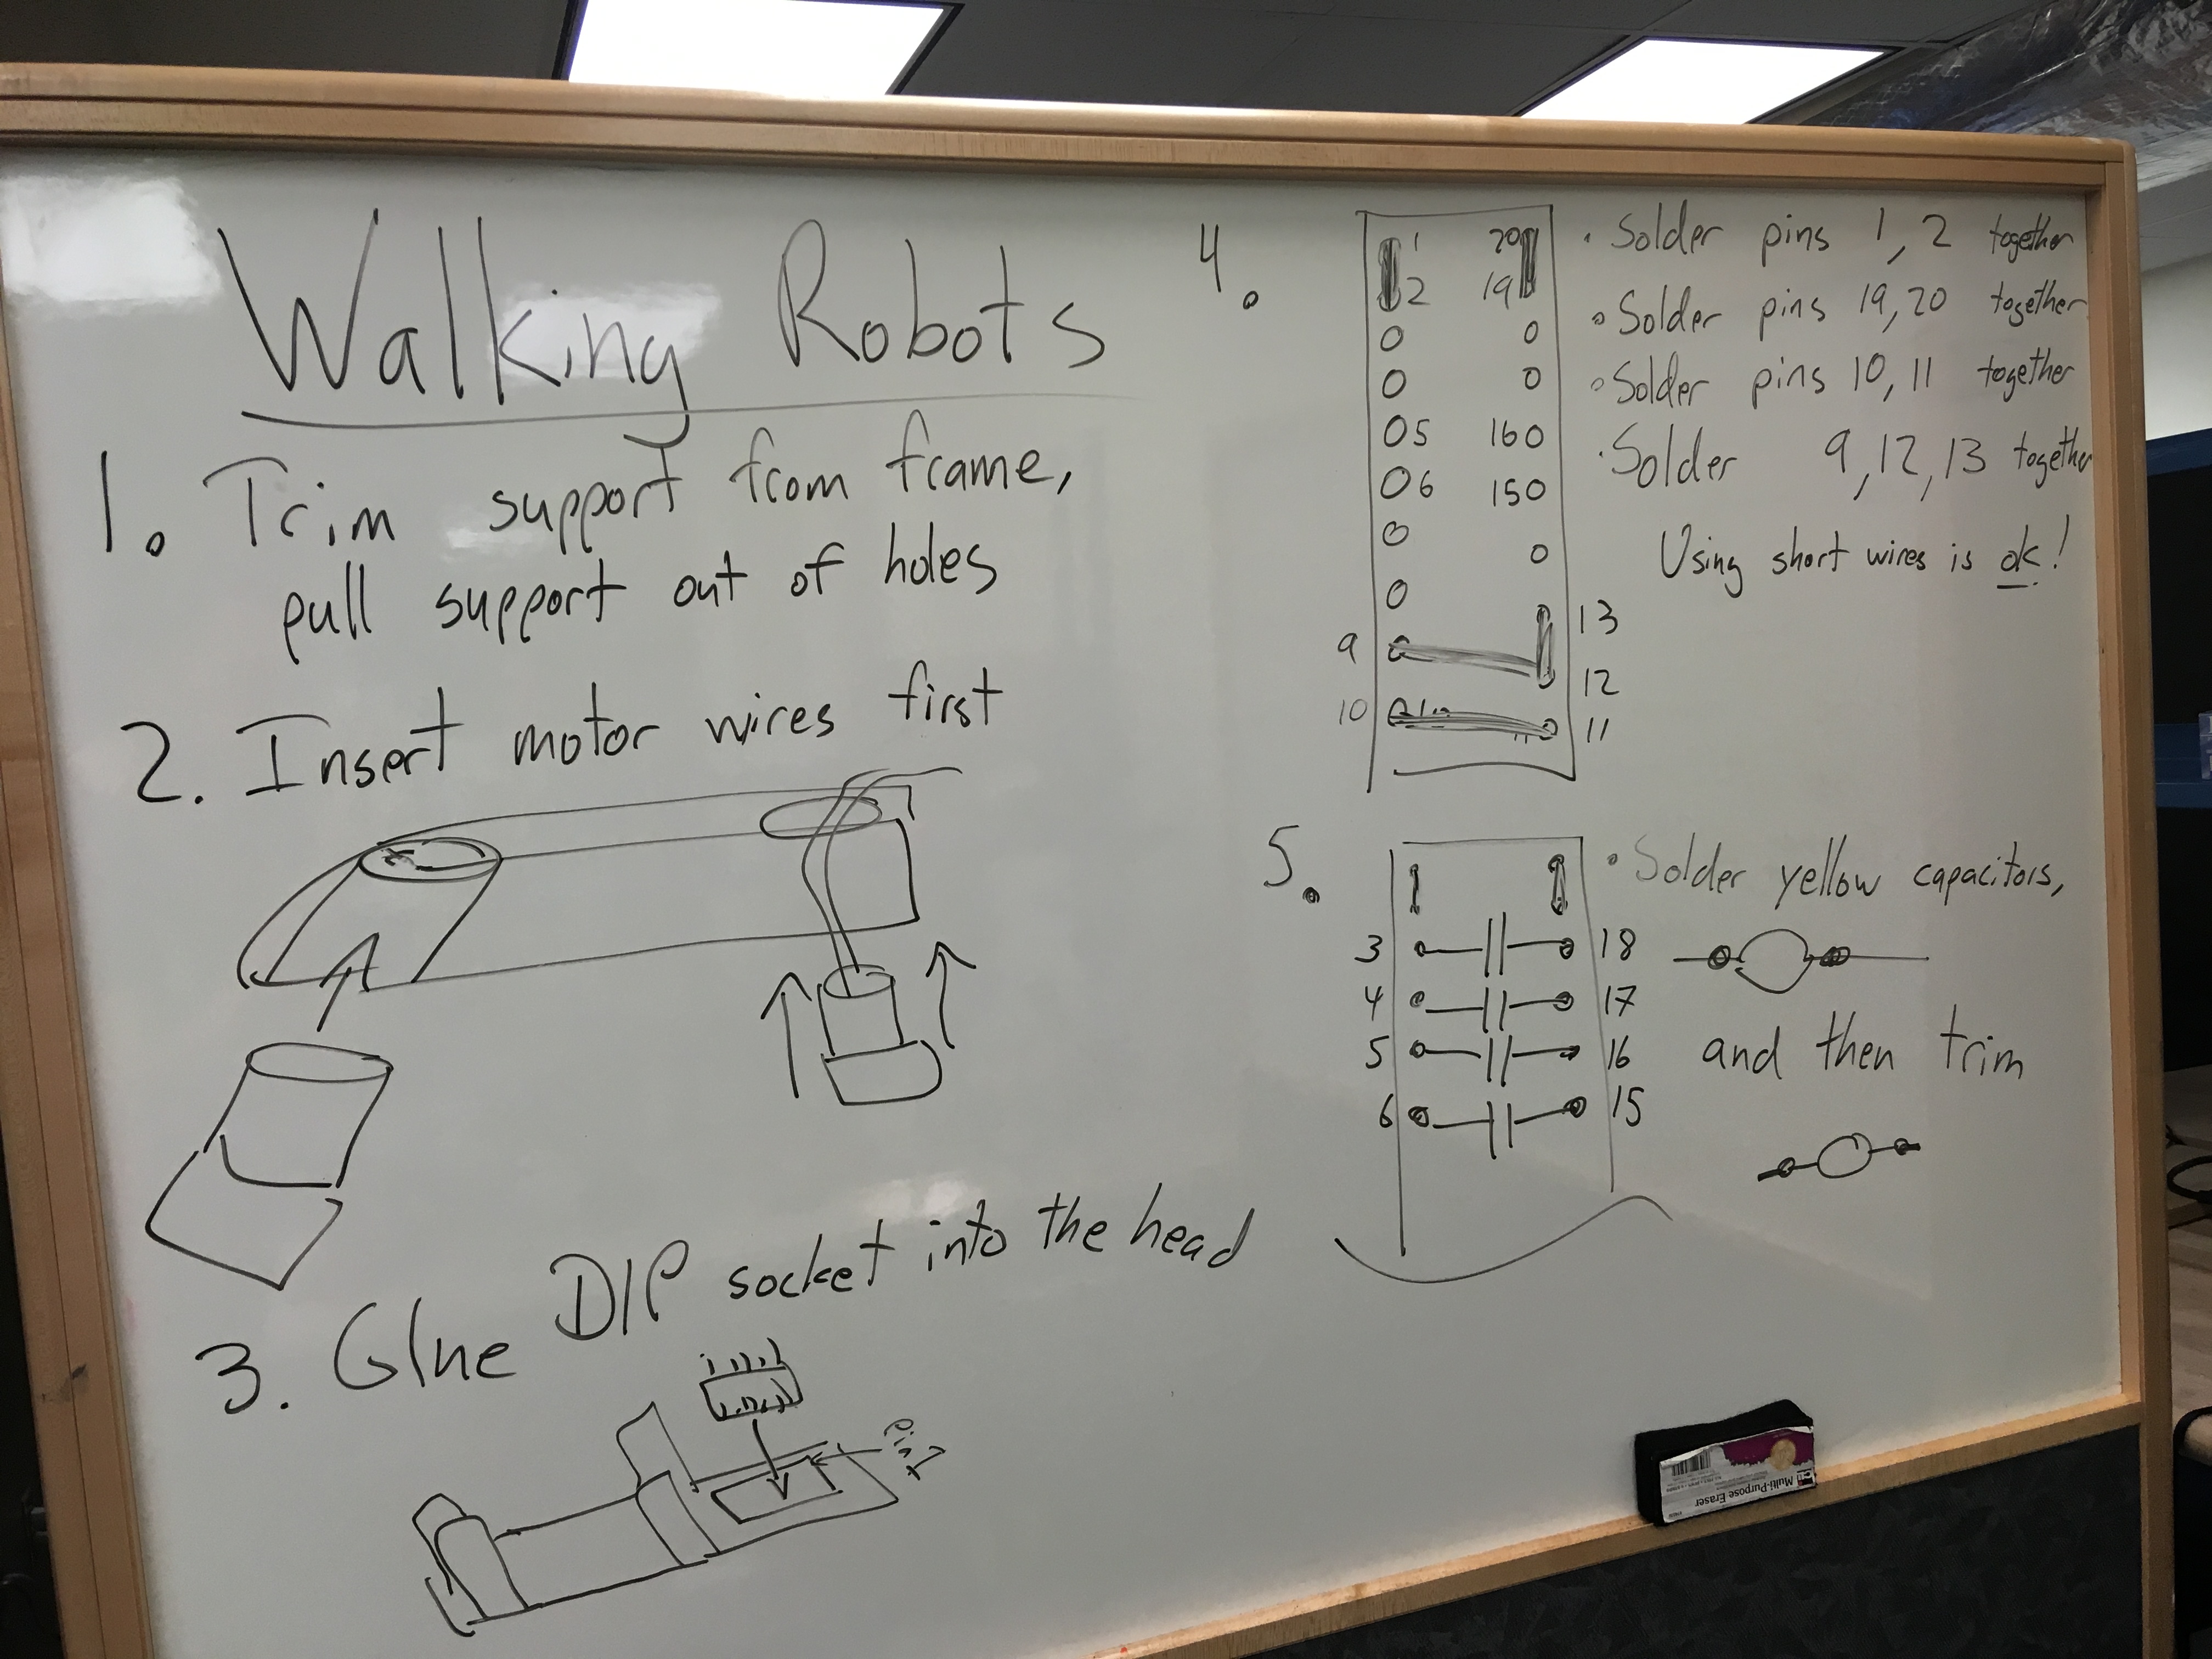 Walking Robots
1. Trim support from frame,
pull support out of holes
2. Insert motor wires first
3. Glue DIP socket into the head
Pin 1
4.
1 20
2 19
5 16
6 15
13
9
12
10
11
• Solder pins 1, 2 together
• Solder pins 19, 20 together
• Solder pins 10, 11 together
• Solder 9, 12, 13 together
Using short wires is ok!
5.
3 18
4 17
5 16
6 15
• Solder yellow capacitors,
and then trim
Multi-Purpose Eraser